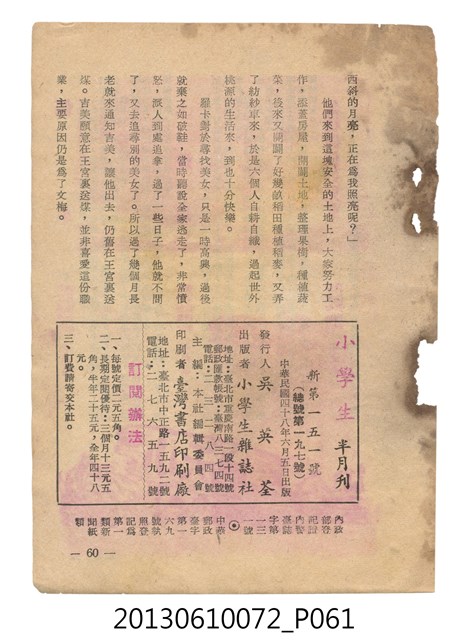 西斜的月亮，正在為我照亮呢？」
他們來到這塊安全的土地上，大家努力工
作，添蓋房屋，開闢土地，整理果樹，種植蔬
菜，後來又開闢了好幾畝稻田種植稻麥，又弄
了紡紗車來，於是六個人自耕自織，過起世外
桃源的生活來，到也十分快樂。
羅卡對於尋找美女，只是一時高興，過後
就棄之如破鞋，當時聽說全家逃走了，非常憤
怒，派人到處追拿，過了一些日子，他就不問
了，又去追尋別的美女了。所以過了幾個月長
老就來通知吉美，讓他出去，仍舊在王宮裏送
煤。吉美願意在王宮裏送煤，並非喜愛這份職
業，主要原因仍是為了文梅。
小學生 半月刊
新第一五一號
（總號第一九七號）
中華民國四十八年六月五日出版
發行人 吳英荃
出版者 小學生雜誌社
地址：臺北市重慶南路一段十四號
郵政匯款帳號：臺灣八三七四號
電話：二三二八四號
主編：本社編輯委員會
印刷者 臺灣書店印刷廠
地址：臺北市中正路一五九二號
電話：二七六五九號
訂閱辦法
一、每號定價二元五角。
二、長期定閱優待：三個月十三元五
角，半年二十五元，全年四十八
元。
三、訂費請寄交本社。
內政部登記證內警臺誌字第一三一號
中華郵政臺字第一六九號執照登記為第一類新聞紙類
— 60 —
20130610072_P061